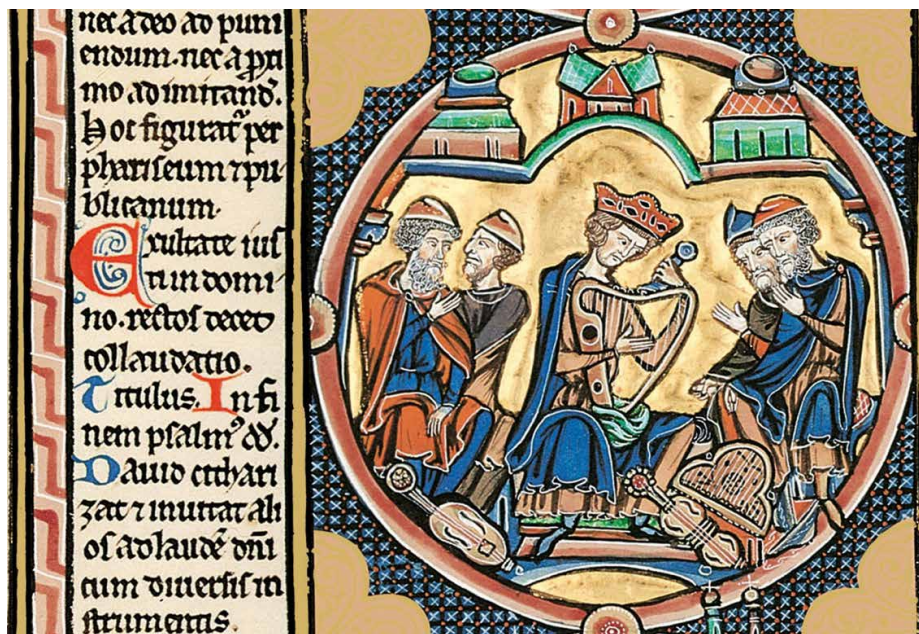 nec adeo ad puni
endum. nec a pri
mo ad imitand̄.
Hoc figurat᷑ per
phariseum ⁊ pu
blicanum.
Exultate ius
ti in domi
no. rectos decet
collaudatio.
Titulus. In fi
nem psalm᷒ dd̄.
Dauid cithari
zat ⁊ inuitat ali
os ad laudē dn̄i
cum diuersis in
strumentis.